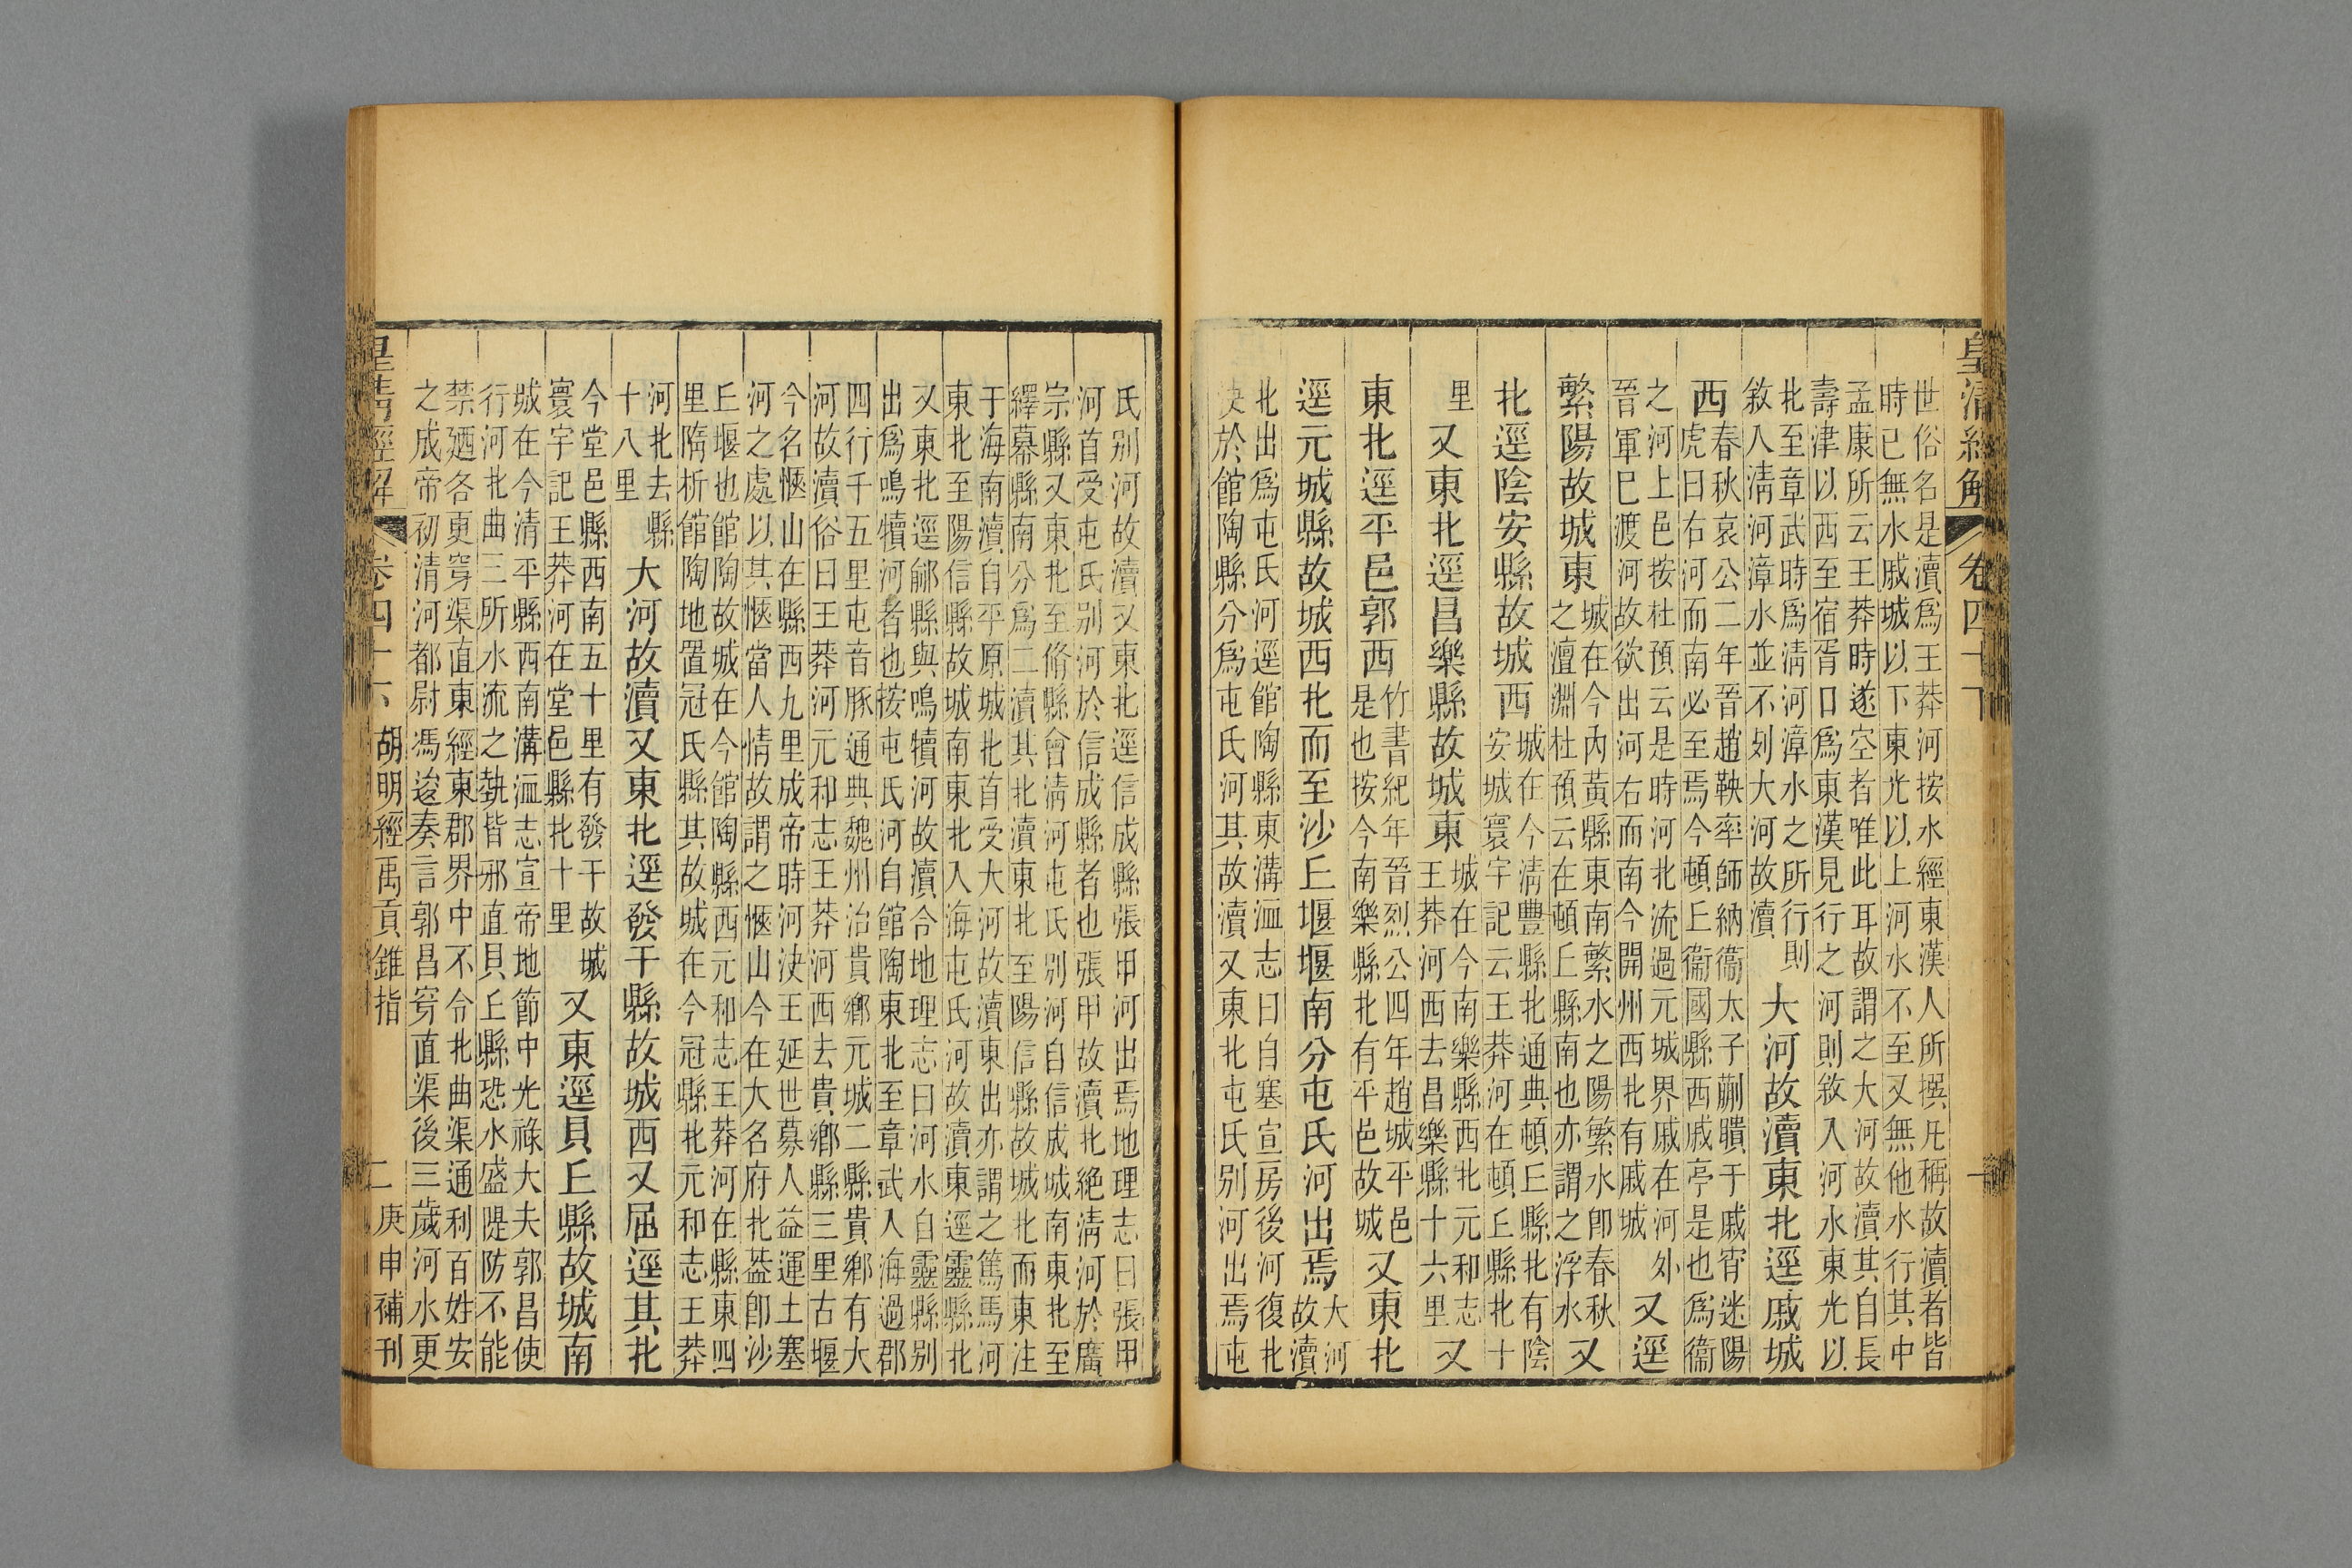 皇清經解 卷四十下
世俗名是瀆爲王莽河按水經東漢人所撰凡稱故瀆者皆
時已無水戚城以下東光以上河水不至又無他水行其中
孟康所云王莽時遂空者唯此耳故謂之大河故瀆其自長
壽津以西至宿胥口爲東漢見行之河則敘入河水東光以
北至章武時爲淸河漳水之所行則
敘入淸河漳水並不列大河故瀆
大河故瀆東北逕戚城
西
春秋哀公二年晉趙鞅率師納衞太子蒯聵于戚宵迷陽
虎曰右河而南必至焉今頓丘衞國縣西戚亭是也爲衞
之河上邑按杜預云是時河北流過元城界戚在河外
晉軍已渡河故欲出河右而南今開州西北有戚城
又逕
繁陽故城東
城在今內黃縣東南繁水之陽繁水卽春秋
之澶淵杜預云在頓丘縣南也亦謂之浮水
又
北逕陰安縣故城西
城在今淸豐縣北通典頓丘縣北有陰
安城寰宇記云王莽河在頓丘縣北十
里
又東北逕昌樂縣故城東
城在今南樂縣西北元和志
王莽河西去昌樂縣十六里
又
東北逕平邑郭西
竹書紀年晉烈公四年趙城平邑
是也按今南樂縣北有平邑故城
又東北
逕元城縣故城西北而至沙丘堰堰南分屯氏河出焉
大河
故瀆
北出爲屯氏河逕館陶縣東溝洫志曰自塞宣房後河復北
決於館陶縣分爲屯氏河其故瀆又東北屯氏別河出焉屯
氏別河故瀆又東北逕信成縣張甲河出焉地理志曰張甲
河首受屯氏別河於信成縣者也張甲故瀆北絶淸河於廣
宗縣又東北至脩縣會淸河屯氏別河自信成城南東北至
繹幕縣南分爲二瀆其北瀆東北至陽信縣故城北而東注
于海南瀆自平原城北首受大河故瀆東出亦謂之篤馬河
東北至陽信縣故城南東北入海屯氏河故瀆東逕靈縣北
又東北逕鄃縣與鳴犢河故瀆合地理志曰河水自靈縣別
出爲鳴犢河者也按屯氏河自館陶東北至章武入海過郡
四行千五里屯音豚通典魏州治貴鄕元城二縣貴鄕有大
河故瀆俗曰王莽河元和志王莽河西去貴鄕縣三里古堰
今名愜山在縣西九里成帝時河決王延世募人益運土塞
河之處以其愜當人情故謂之愜山今在大名府北葢卽沙
丘堰也館陶故城在今館陶縣西元和志王莽河在縣東四
里隋析館陶地置冠氏縣其故城在今冠縣北元和志王莽
河北去縣
十八里
大河故瀆又東北逕發干縣故城西又屈逕其北
今堂邑縣西南五十里有發干故城
寰宇記王莽河在堂邑縣北十里
又東逕貝丘縣故城南
城在今清平縣西南溝洫志宣帝地節中光祿大夫郭昌使
行河北曲三所水流之勢皆邪直貝丘縣恐水盛隄防不能
禁廼各更穿渠直東經東郡界中不令北曲渠通利百姓安
之成帝初清河都尉馮逡奏言郭昌穿直渠後三歲河水更
皇清經解 卷四十下 胡明經禹貢錐指 二 庚申補刊